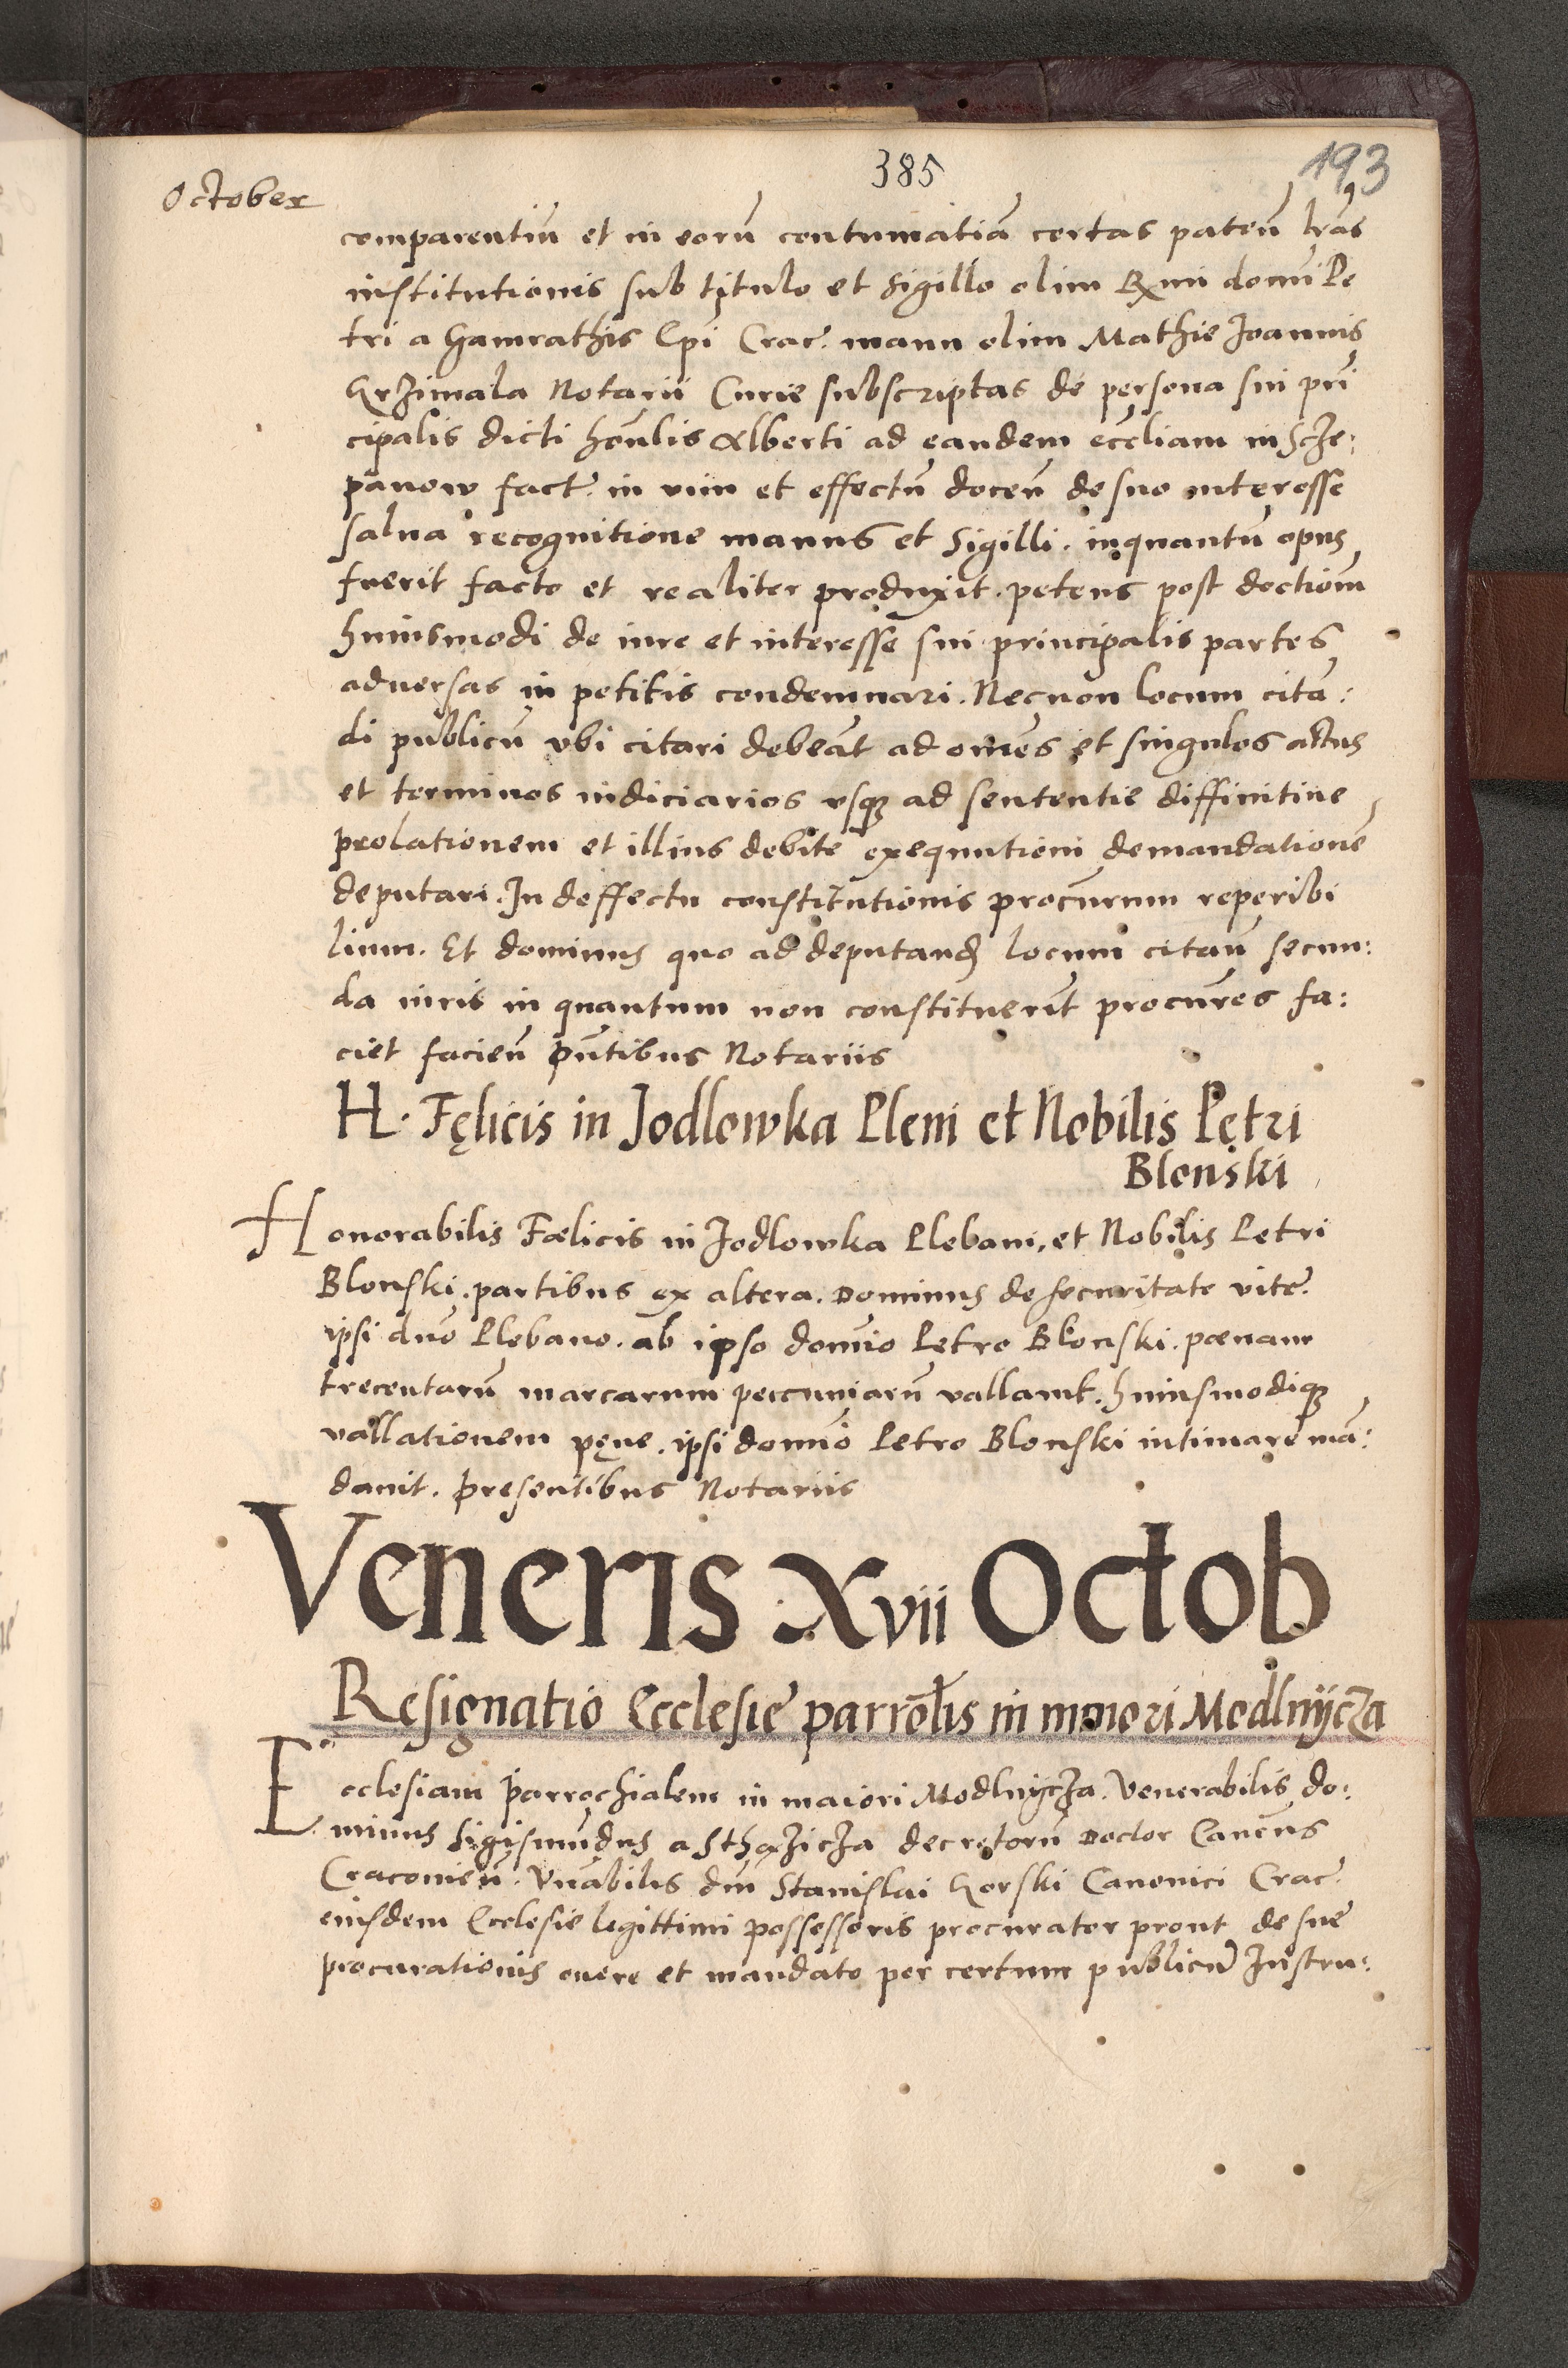 385
193
October
comparentiũ et in eorũ contumatiã certas pateñ lr̃as
institutionis sub titulo et Sigillo olim Rx̃mi domini Pe
tri a Gamrathis Ep̃i Crac̃. manu olim Mathie Joannis
Grzimala Notarii Curie subscriptas de persona sui pri̇̃
cipalis dicti hoñlis Alberti ad eandem eccl̃iam in Scze:
panow fact̃. in vim et effectũ doceñ de suo interesse
salua recognitione manus et Sigilli. inquantũ opus
fuerit facto et realiter produxit. petens post doctiom̃
huiusmodi de iure et interesse sui principalis partes
aduersas in petitis condemnari. Necnon locum citã:
di publicũ vbi citari debeãt ad om̃es et singulos actus
et terminos iudiciarios vsq₃ ad sententie diffinitiue
prolationem et illius debite exequutioni demandationẽ
deputari. In deffectu constitutionis procũrum reperibi
lium. Et dominus quo ad deputanđ locum citañ secun:
da iuris in quantum non constituerĩt procũres fa:
ciet facieñ pñtibus Notariis
H. Fęlicis in Jodlowka Plẽni et Nobilis Petri
Blonski
Honorabilis Fælicis in Jodlowka Plebani, et Nobilis Petri
Blonski. partibus ex altera. Dominus de securitate vite.
ipsi dño Plebano. ab ipso domĩo Petro Blonski. pœnam
trecentarũ marcarum peccuniarũ vallauit. huiusmodiq₃
vallationem pęne. ipsi domĩo Petro Blonski intimare mã:
dauit. presentibus Notariis
Veneris Xvii Octob
Resignatio Ecclesie parro͠lis in minori Modlnijcza
Ecclesiam parrochialem in maiori Modlnijcza. Venerabilis do:
minus Sigismũdus a Sthęzicza decretorũ Doctor Canc̃us
Cracouieñ. Vñabilis dñi Stanislai Gorski Canonici Crac̃.
eiusdem Ecclesie legittimi possessoris procurator prout de sue
procurationis onere et mandato per certum publicũ Instru: